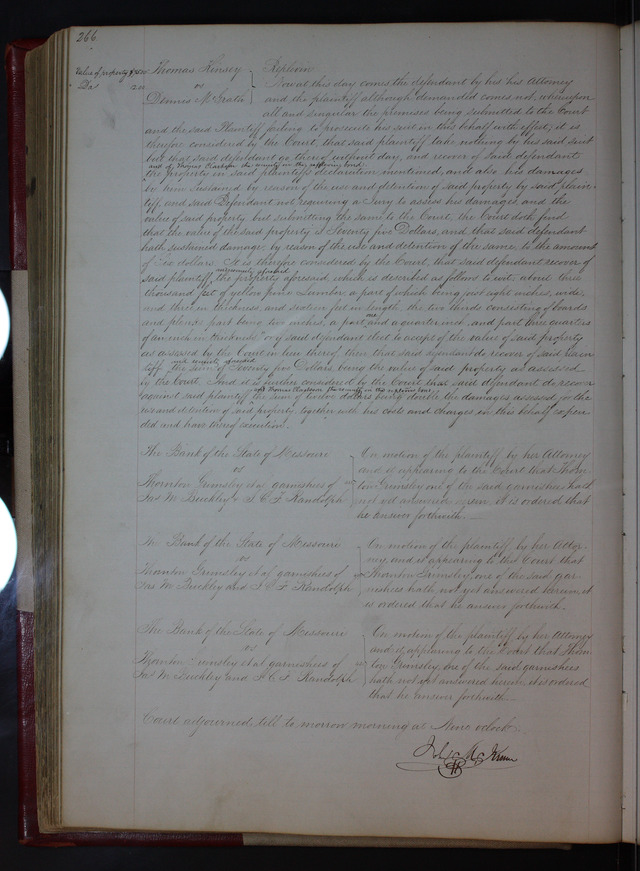 266
Value of property $75.00
Das 12.00
Thomas Kinsey
vs
Dennis McGrath
Replevin
Now at this day comes the defendant by his his Attorney
and the plaintiff although demanded comes not, whereupon
all and singular the premises being submitted to the Court
and the said Plaintiff failing to prosecute his suit in this behalf with effect, it is
therefore considered by the Court, that said plaintiff take nothing by his said suit
but that said defendant go thereof without day, and recover of said defendant
and of Thomas his security in this replevin bond
the property in said plaintiffs declaration mentioned, and also his damages
by him sustained by reason of the use and detention of said property by said plain-
tiff, and said Defendant not requiring a Jury to assess his damages, and the
value of said property but submitting the same to the Court, the Court doth find
that the value of the said property is Seventy five Dollars, and that said defendant
hath sustained damage, by reason of the use and detention of the same, to the amount
of six dollars. It is therefore considered by the Court, that said defendant recover of
said plaintiff and security aforesaid the property aforesaid, which is described as follows to wit: about three
thousand feet of yellow pine Lumber, a part of which being four eight inches, wide,
and three in thickness, and sixteen feet in length, the two thirds consisting of boards
and plank part being two inches, a part one and a quarter inch, and part three quarters
of an inch in thickness or if said defendant elect to accept of the value of said property
as assessed by the Court in lieu thereof then that said defendant do recover of said Plain
tiff and security aforesaid the sum of Seventy five Dollars being the value of said property as assessed
by the Court. And it is further considered by the Court that said defendant do recover
against said plaintiff and Thomas the security in the replevin bond the sum of twelve dollars being double the damages assessed for the
use and detention of said property, together with his costs and charges in this behalf expen
ded and have thereof execution.
The Bank of the State of Missouri
vs
Thornton Grimsley et al garnishees of
Jas W Buckley & S C F Randolph
On motion of the plaintiff by her Attorney
and it appearing to the Court that Thorn
ton Grimsley one of the said garnishees hath
not yet answered herein, it is ordered that
he answer forthwith.
The Bank of the State of Missouri
vs
Thornton Grimsley et al garnishees of
Jas W Buckley and S C F Randolph
On motion of the plaintiff by her Attor
ney, and it appearing to the Court that
Thornton Grimsley, one of the said gar-
nishees hath, not yet answered herein, it
is ordered that he answer forthwith.
The Bank of the State of Missouri
vs
Thornton Grimsley et al garnishees of
Jas W Buckley and S C F Randolph
On motion of the plaintiff, by her Attorney
and it appearing to the Court that Thorn
ton Grimsley, one of the said garnishees
hath not yet answered herein, it is ordered
that he answer forthwith
Court adjourned till to morrow morning at Nine oclock.